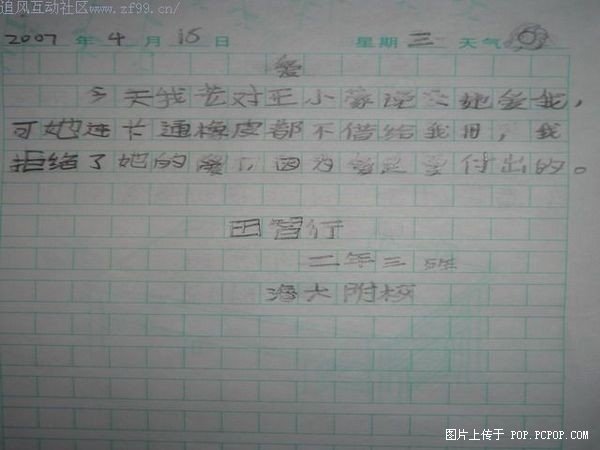 追风互动社区www.zf99.cn/
2007 年 4 月 15 日 星期 三 天气
爱
今天我 对王小 说 她爱我，
可她连卡通橡皮都不借给我用，我
拒绝了她的爱 ，因为爱是要付出的。
田智行
二年三班
海大附校
图片上传于 POP.PCPOP.COM